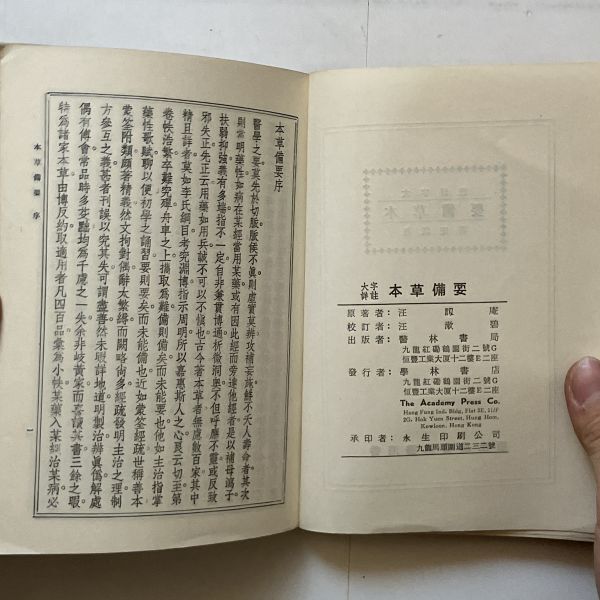 本草備要序
醫學之要莫先於切脈脈候不眞則虛實莫辨攻補妄施鮮不夭人壽命者其次
則當明藥性如病在某經當用某藥或有因此經而旁達他經者是以補母瀉子
扶弱抑強義有多端指不一定自非兼貫博通析微洞奧不但呼應不靈或反致
邪失正先正云用藥如用兵誠不可以不愼也古今著本草者無慮數百家其中
精且詳者莫如李氏綱目考究淵博指示周明所以嘉惠斯人之心良云切至第
卷帙浩繁卒難究殫舟車之上攜取為難備則備矣而未能要也他如主治指掌
藥性歌賦聊以便初學之誦習要則要矣而未能備也近如蒙筌經疏世稱善本
蒙筌附類頗著精義然文拘對偶辭太繁縟而闕略尙多經疏發明主治之理制
方參互之義甚者刊誤以究其失可謂盡善然未暇詳地道明製治辨眞偽解處
偶有傅會常品時多芟黜均為千慮之一失余非岐黃家而喜讀其書三餘之暇
特為諸家本草由博反約取適用者凡四百品彙為小帙某藥入某經治某病必
本草備要 序
一
大字
詳註
本草備要
原著者：汪訒庵
校訂者：汪漱碧
出版者：醫林書局
九龍紅磡鶴園街二號G
恒豐工業大厦十二樓E二座
發行者：學林書店
九龍紅磡鶴園街二號G
恒豐工業大厦十二樓E二座
The Academy Press Co.
Hang Fung Ind. Bldg, Flat 2E, 11/F
2G, Hok Yuen Street, Hung Hom,
Kowloon, Hong Kong
承印者：永生印刷公司
九龍馬頭圍道二三二號